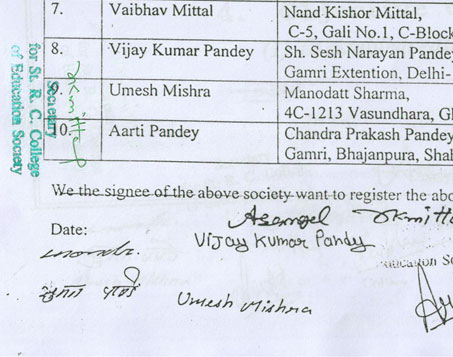 7. Vaibhav Mittal Nand Kishor Mittal,
C-5, Gali No.1, C-Block
8. Vijay Kumar Pandey Sh. Sesh Narayan Pandey
Gamri Extention, Delhi-
9. Umesh Mishra Manodatt Sharma,
4C-1213 Vasundhara, Gh
10. Aarti Pandey Chandra Prakash Pandey
Gamri, Bhajanpura, Shah
Secretary
for St. R. C. College
of Education Society
We the signee of the above society want to register the abo
Date:
Vijay Kumar Pandy
ducation So
Umesh Mishra